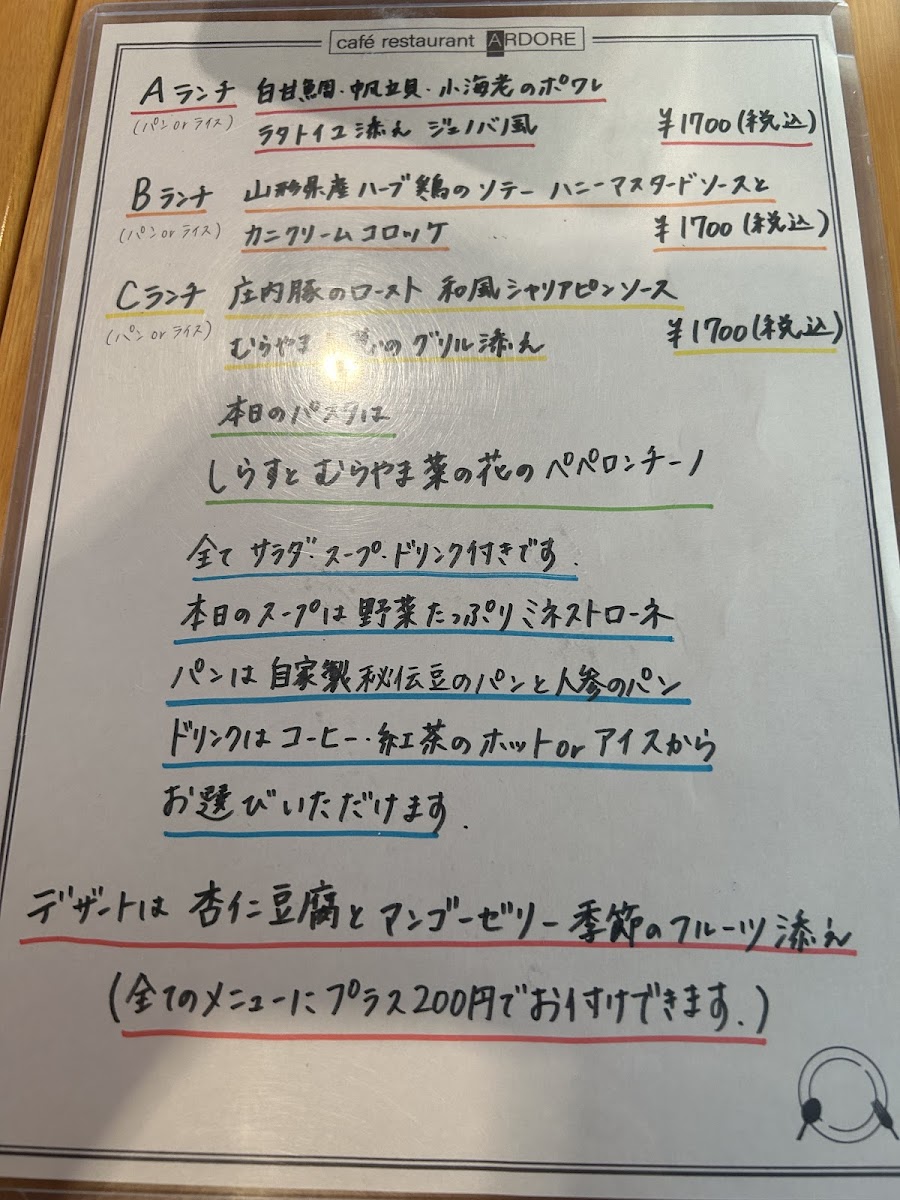 café restaurant ARDORE
Aランチ 白甘鯛・帆立貝・小海老のポワレ
(パン or ライス)
ラタトイユ添え ジェノバノ風 ¥1700(税込)
Bランチ 山形県産ハーブ鶏のソテー ハニーマスタードソースと
(パン or ライス)
カニクリームコロッケ ¥1700(税込)
Cランチ 庄内豚のロースト 和風シャリアピンソース
(パン or ライス)
むらやま のグリル添え ¥1700(税込)
本日のパスタは
しらすと むらやま菜の花の ペペロンチーノ
全て サラダ・スープ・ドリンク付きです.
本日のスープは 野菜たっぷりミネストローネ
パンは 自家製秘伝豆のパンと人参のパン
ドリンクは コーヒー・紅茶の ホットor アイスから
お選びいただけます.
デザートは 杏仁豆腐と マンゴーゼリー 季節のフルーツ添え
(全てのメニューに プラス200円でお付けできます.)